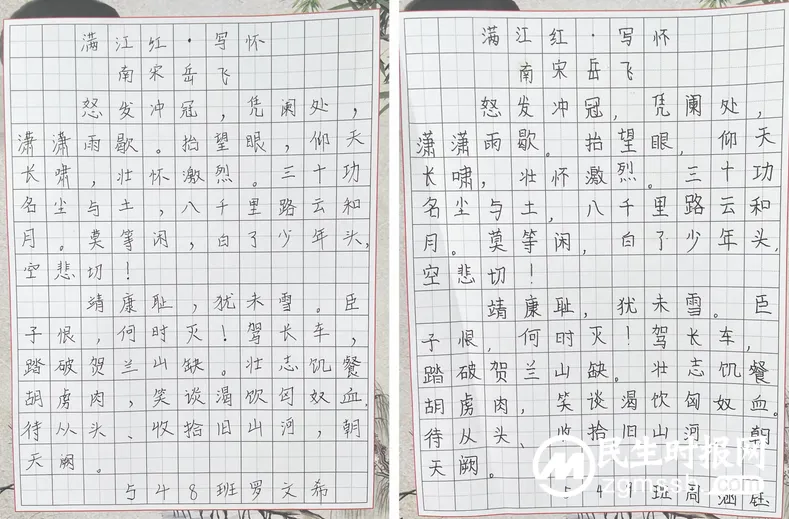 满江红·写怀
南宋岳飞
怒发冲冠，凭阑处，
潇潇雨歇。抬望眼，仰天
长啸，壮怀激烈。三十功
名尘与土，八千里路云和
月。莫等闲，白了少年头，
空悲切！
靖康耻，犹未雪。臣
子恨，何时灭！驾长车，
踏破贺兰山缺。壮志饥餐
胡虏肉，笑谈渴饮匈奴血。
待从头、收拾旧山河，朝
天阙。
548班罗文希
满江红·写怀
南宋岳飞
怒发冲冠，凭阑处，
潇潇雨歇。抬望眼，仰天
长啸，壮怀激烈。三十功
名尘与土，八千里路云和
月。莫等闲，白了少年头，
空悲切！
靖康耻，犹未雪。臣
子恨，何时灭！驾长车，
踏破贺兰山缺。壮志饥餐
胡虏肉，笑谈渴饮匈奴血。
待从头、收拾旧山河，朝
天阙。
54班周涵钰
民生时报网
zgmssb.com